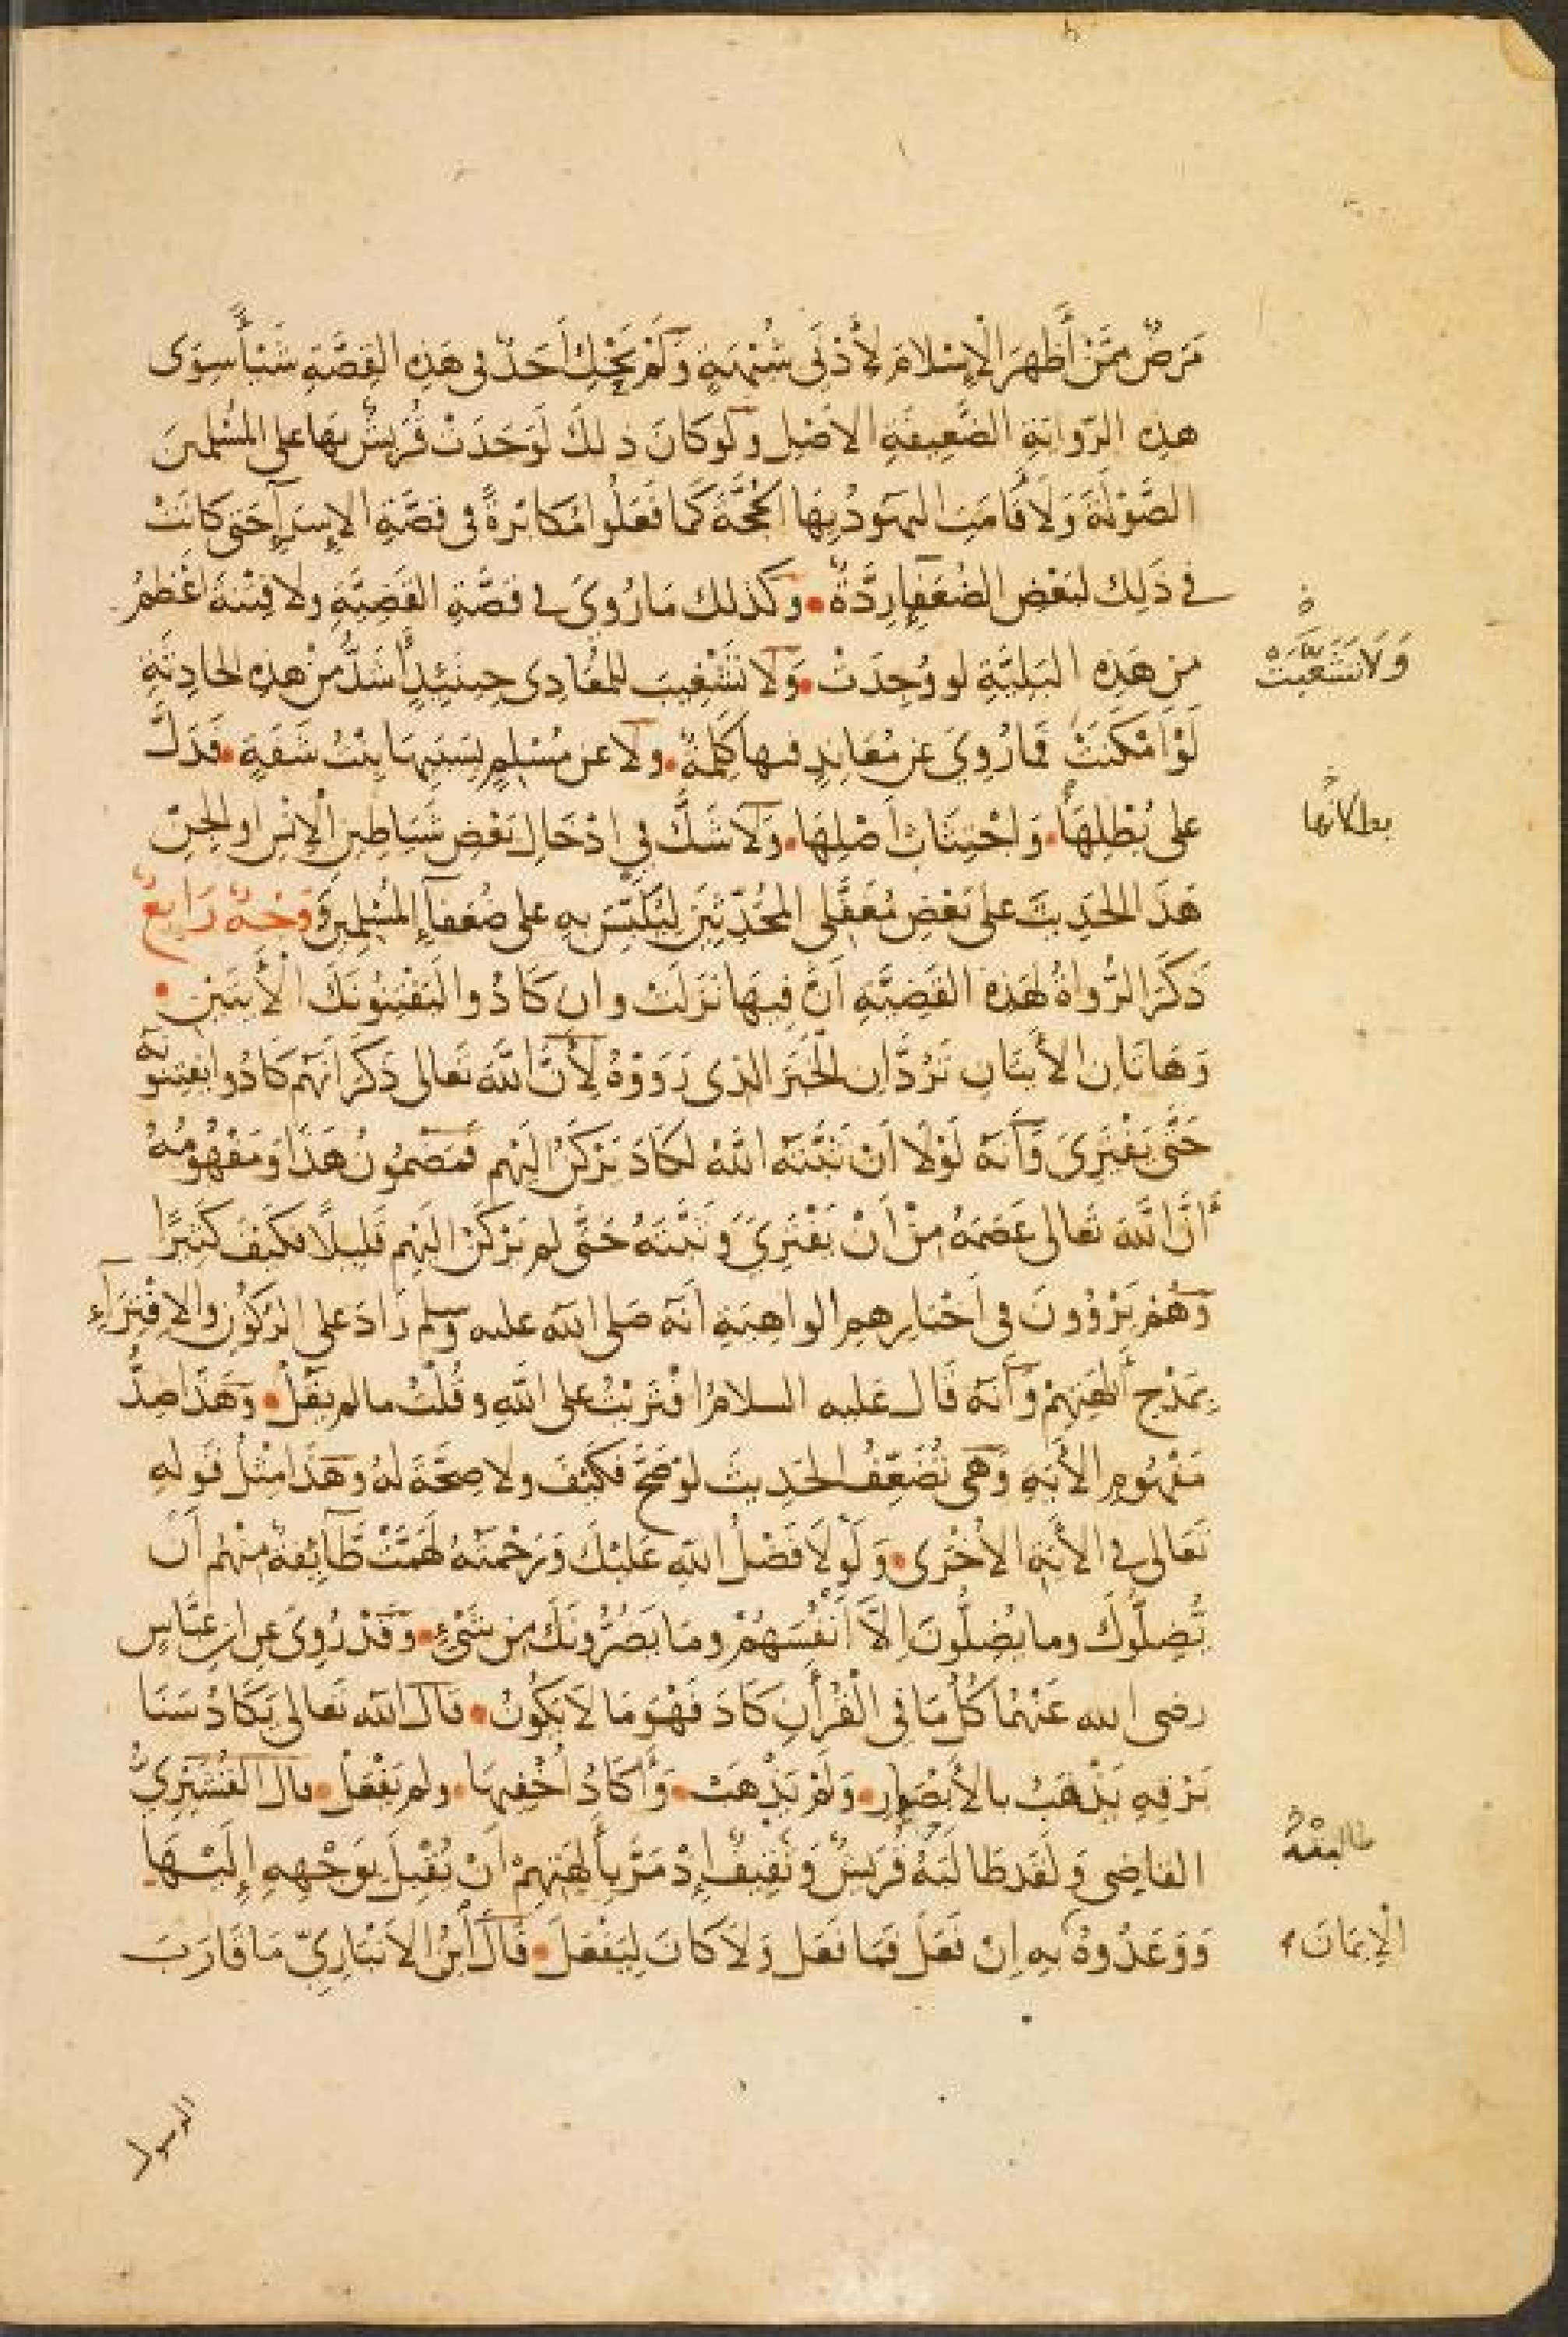 مَرَضٌ مِمَّنْ أَظْهَرَ الْإِسْلَامَ لِأَدْنَى شُبْهَةٍ وَلَمْ يَحْكِ أَحَدٌ فِي هَذِهِ الْقِصَّةِ شَيْأً سِوَى
هذِهِ الرِّوَايَةِ الضَّعِيفَةِ الأَصْلِ وَلَوْ كَانَ ذلِكَ لَوَجَدَتْ قُرَيْشٌ بِهَا عَلَى الْمُسْلِمِينَ
الصَّوْلَةَ وَلَأَقَامَتِ الْيَهُودُ بِهَا الْحُجَّةَ كَمَا فَعَلُوا مُكَابَرَةً فِي قِصَّةِ الإِسْرَآءِ حَتَّى كَانَتْ
فِي ذَلِكَ لِبَعْضِ الضُّعَفَاءِ رِدَّةٌ وَكَذلِكَ مَا رُوِيَ فِي قِصَّةِ الْقَضِيَّةِ وَلَا فِتْنَةَ أَعْظَمُ
مِنْ هَذِهِ الْبَلِيَّةِ لَوْ وُجِدَتْ وَلَا تَشْغِيبَ لِلْمُعَادِي حِينَئِذٍ أَشَدُّ مِنْ هذِهِ الْحَادِثَةِ
لَوْ أَمْكَنَتْ فَمَا رُوِيَ عَنْ مُعَانِدٍ فِيهَا كَلِمَةٌ وَلَا عَنْ مُسْلِمٍ بِسَبَبِهَا بِنْتُ شَفَةٍ فَدَلَّ
عَلَى بُطْلِهَا وَاجْتِثَاثِ أَصْلِهَا وَلَا شَكَّ فِي إِدْخَالِ بَعْضِ شَيَاطِينِ الْإِنْسِ أَوِ الْجِنِّ
هَذَا الْحَدِيثَ عَلَى بَعْضِ مُغَفَّلِي الْمُحَدِّثِينَ لِيُلَبِّسَ بِهِ عَلَى ضُعَفَآءِ الْمُسْلِمِينَ وَوَجْهٌ رَابِعٌ
ذَكَرَ الرُّوَاةُ لِهَذِهِ الْقَضِيَّةِ أَنَّ فِيهَا نَزَلَتْ وَإِنْ كَادُوا لَيَفْتِنُونَكَ الْأَيَتَيْنِ
وَهَاتَانِ الأَيَتَانِ تَرُدَّانِ الْخَبَرَ الَّذِي رَوَوْهُ لِأَنَّ اللَّهَ تَعَالَى ذَكَرَ أَنَّهُمْ كَادُوا يَفْتِنُونَهُ
حَتَّى يَفْتَرِيَ وَأَنَّهُ لَوْلَا أَنْ ثَبَّتَهُ اللَّهُ لَكَادَ يَرْكَنُ إِلَيْهِمْ فَمَضْمُونُ هَذَا وَمَفْهُومُهُ
أَنَّ اللَّهَ تَعَالَى عَصَمَهُ مِنْ أَنْ يَفْتَرِيَ وَثَبَّتَهُ حَتَّى لَمْ يَرْكَنْ إِلَيْهِمْ قَلِيلًا فَكَيْفَ كَثِيرًا
وَهُمْ يَرْوُونَ فِي أَخْبَارِهِمِ الْوَاهِيَةِ أَنَّهُ صَلَّى اللَّهُ عَلَيْهِ وَسَلَّمَ زَادَ عَلَى الرُّكُونِ وَالإِفْتِرَآءِ
بِمَدْحِ أَلِهَتِهِمْ وَأَنَّهُ قَالَ عَلَيْهِ السَّلَامُ افْتَرَيْتُ عَلَى اللَّهِ وَقُلْتُ مَا لَمْ يَقُلْ وَهَذَا ضِدُّ
مَفْهُومِ الأَيَةِ وَهِيَ تُضَعِّفُ الْحَدِيثَ لَوْ صَحَّ فَكَيْفَ وَلَا صِحَّةَ لَهُ وَهَذَا مِثْلُ قَوْلِهِ
تَعَالَى فِي الأَيَةِ الأُخْرَى وَلَوْلَا فَضْلُ اللَّهِ عَلَيْكَ وَرَحْمَتُهُ لَهَمَّتْ طَّآئِفَةٌ مِنْهُمْ أَنْ
يُّضِلُّوكَ وَمَا يُضِلُّونَ إِلَّا أَنْفُسَهُمْ وَمَا يَضُرُّونَكَ مِنْ شَيْءٍ وَقَدْ رُوِيَ عَنِ ابْنِ عَبَّاسٍ
رَضِيَ اللَّهُ عَنْهُمَا كُلُّ مَا فِي الْقُرْأَنِ كَادَ فَهُوَ مَا لَا يَكُونُ قَالَ اللَّهُ تَعَالَى يَكَادُ سَنَا
بَرْقِهِ يَذْهَبُ بِالأَبْصَارِ وَلَمْ يَذْهَبْ وَأَكَادُ أُخْفِيهَا وَلَمْ يَفْعَلْ قَالَ الْقُشَيْرِيُّ
الْقَاضِي وَلَقَدْ طَالَبَهُ قُرَيْشٌ وَثَقِيفٌ إِذْ مَرَّ بِأَلِهَتِهِمْ أَنْ يُقْبِلَ بِوَجْهِهِ إِلَيْهَا
وَوَعَدُوهُ بِهِ إِنْ فَعَلَ فَمَا فَعَلَ وَلَا كَانَ لِيَفْعَلَ قَالَ ابْنُ الأَنْبَارِيِّ مَا قَارَبَ
وَلَا تَشَعُّبَتْ
بطلانها
طالبته
الْإِيمَانَ
الرسول